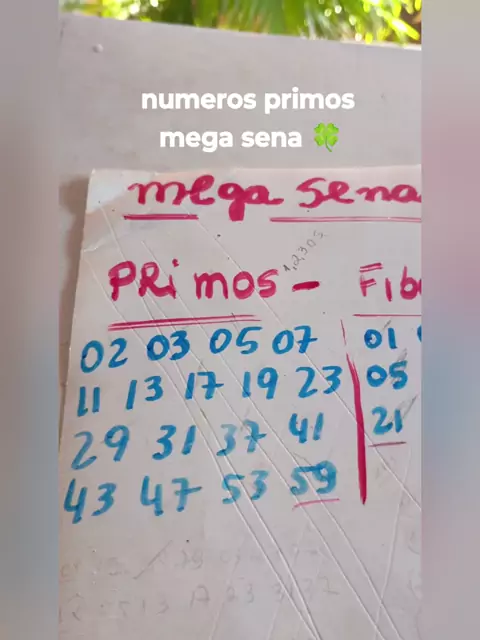 numeros primos
mega sena 🍀
mega sena
PRimos -
02 03 05 07
11 13 17 19 23
29 31 37 41
43 47 53 59
01
05
21